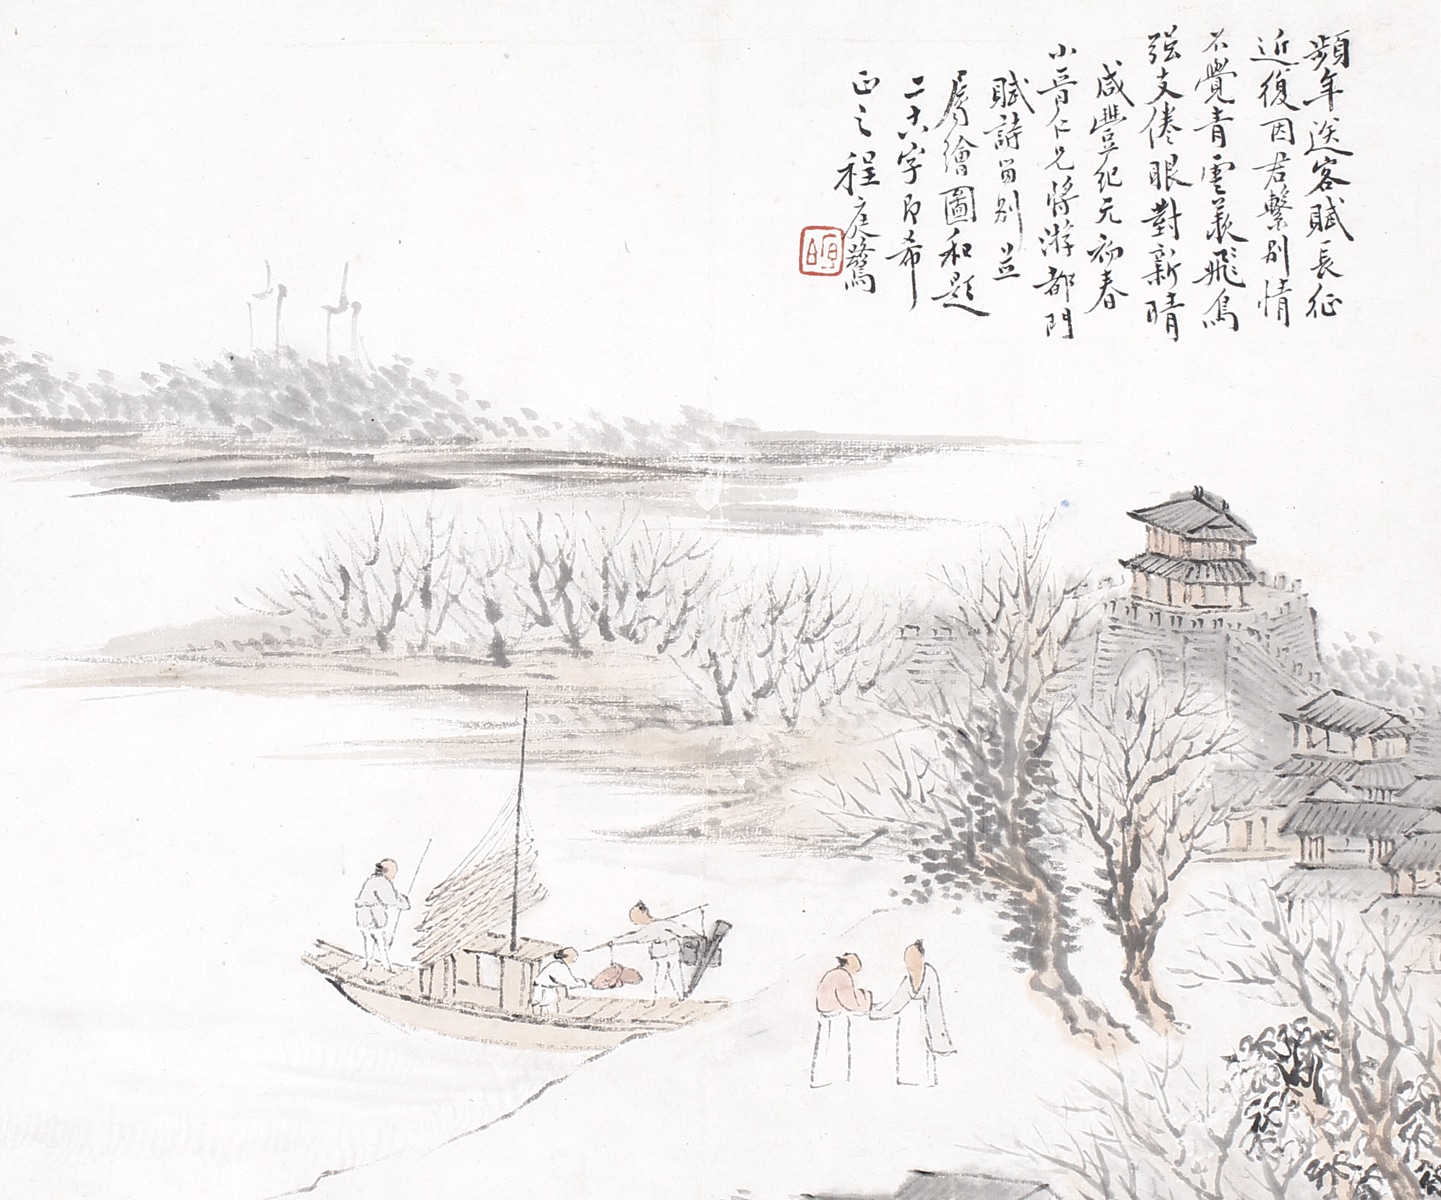 頻年送客賦長征
近復因君繫別情
不覺青雲羨飛鳥
强支倦眼對新晴
咸豐紀元初春
小晉仁兄將游都門
賦詩留別並
屬繪圖和題
二十八字即希
正之程庭鷺